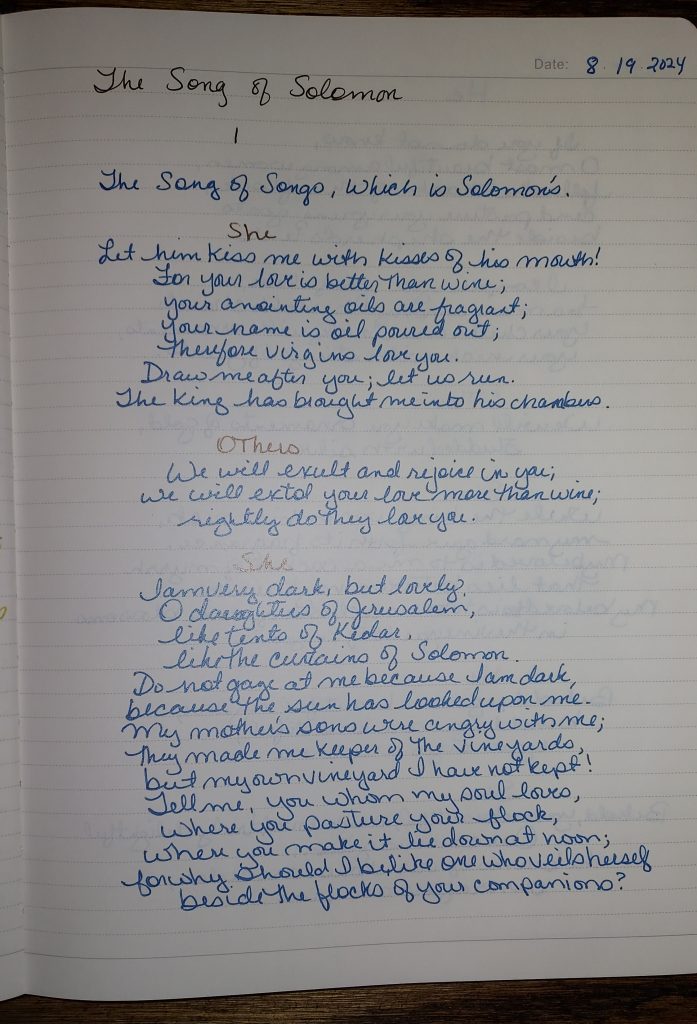 Date: 8 19 2024
The Song of Solomon
1
The Song of Songs, which is Solomon's.
She
Let him kiss me with kisses of his mouth!
For your love is better than wine;
your anointing oils are fragrant;
your name is oil poured out;
Therefore virgins love you.
Draw me after you; let us run.
The King has brought me into his chambers.
Others
We will exult and rejoice in you;
we will extol your love more than wine;
rightly do they love you.
She
I am very dark, but lovely,
O daughters of Jerusalem,
like tents of Kedar,
like the curtains of Solomon.
Do not gaze at me because I am dark,
because the sun has looked upon me.
My mother's sons were angry with me;
They made me keeper of the vineyards,
but my own vineyard I have not kept!
Tell me, you whom my soul loves,
where you pasture your flock,
where you make it lie down at noon;
for why should I be like one who veils herself
beside the flocks of your companions?